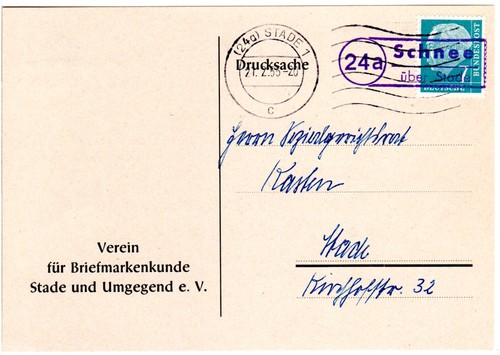 (24a) STADE 1
Drucksache
21.2.55-20
c
24a
Schnee
über Stade
7
DEUTSCHE
BUNDESPOST
Herrn Sozialgerichtsrat
Karsten
Stade
Kirchhofstr. 32
Verein
für Briefmarkenkunde
Stade und Umgegend e. V.